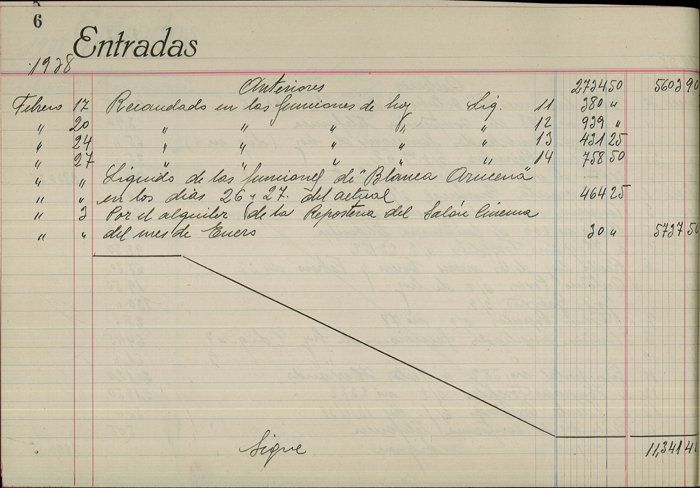 6
Entradas
1928
Anteriores 2734 50 5603 90
Febrero 17 Recaudado en las funciones de hoy Liq. 11 380 "
" 20 " " " " " 12 939 "
" 24 " " " " " 13 431 25
" 27 " " " " " 14 758 50
" " Líquido de las funciones de "Blanca Azucena"
" " en los dias 26 y 27 del actual 464 25
" 3 Por el alquiler de la Reposteria del Salón Cinema
" " del mes de Enero 30 " 5737 50
Sigue 11,341 4